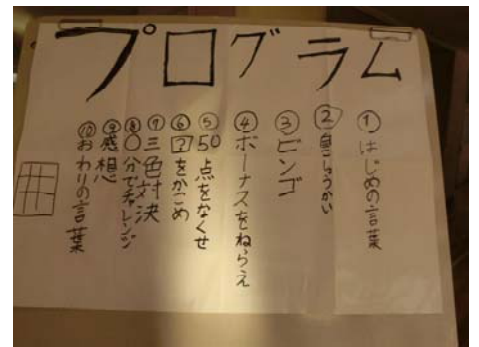 プログラム
①はじめの言葉
②自こしょうかい
③ビンゴ
④ボーナスをねらえ
⑤50点をなくせ
⑥?をかこめ
⑦三色対決
⑧○分でチャレンジ
⑨感想
⑩おわりの言葉